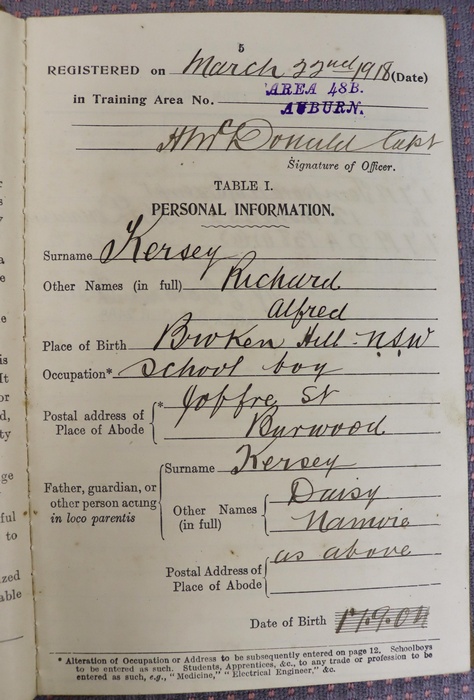 5
REGISTERED on March 22nd 1918 (Date)
in Training Area No. AREA 48B.
AUBURN.
H McDonald Capt
Signature of Officer.
TABLE I.
PERSONAL INFORMATION.
Surname Kersey
Other Names (in full) Richard
Alfred
Place of Birth Broken Hill - N.S.W
Occupation* School boy
Postal address of Place of Abode * Joffre St
Burwood
Father, guardian, or other person acting in loco parentis
Surname Kersey
Other Names (in full) Daisy
as above
Postal Address of Place of Abode
Date of Birth
* Alteration of Occupation or Address to be subsequently entered on page 12. Schoolboys
to be entered as such. Students, Apprentices, &c., to any trade or profession to be
entered as such, e.g., "Medicine," "Electrical Engineer," &c.